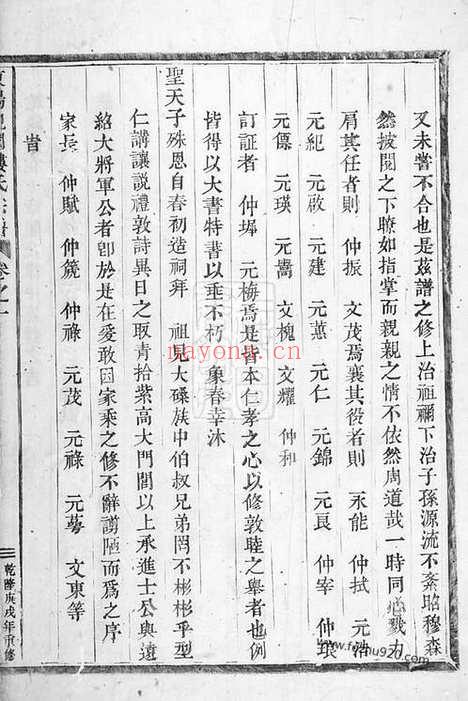 又未嘗不合也是茲譜之修上治祖禰下治子孫源流不紊昭穆森
然披閱之下瞭如指掌而親親之情不依然周道哉一時同心戮力
肩其任者則 仲振 文茂焉襄其役者則 永能 仲拭 元浩
元紀 元啟 元建 元蕙 元仁 元錦 元良 仲宰 仲環
元儒 元瑛 元嵩 文槐 文耀 仲和
訂証者 仲墀 元梅焉是皆本仁孝之心以修敦睦之舉者也例
皆得以大書特書以垂不朽 象春幸沐
聖天子殊恩自春初造祠拜 祖見大碟族中伯叔兄弟罔不彬彬乎型
仁講讓說禮敦詩異日之取青拾紫高大門閭以上承進士公與遠
紹大將軍公者卽於是在爰敢因家乘之修不辭謭陋而為之序
旹
家長 仲賦 仲箎 仲祿 元茂 元祿 元勝 文東等
宗譜 卷之一
乾隆庚戌年重修
nayona.cn
f.youhu920.com